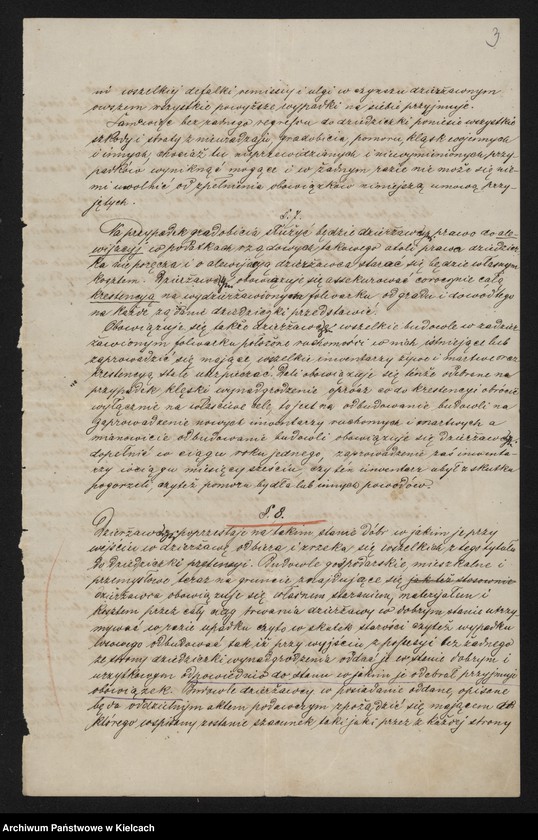 3
wi wszelkiej defalki remissii i ulgi w czynszu dzierżawnym
owszem wszystkie powyższe wypadki na siebie przyjmuje.
bez żadnego regressu do dziedziczki poniesie wszystkie
szkody i straty z nieurodzaju, gradobicia, pomoru, klęsk wojennych
i innych, chociaż tu nieprzewidzianych i niewymienionych, przy-
padków wyniknąć mogące i w żadnym razie nie może się nie-
mi uwolnić od spełnienia obowiązków niniejszą umową przy-
jętych.
§ 7.
Na przypadek gradobicia służyć będzie dzierżawcy prawo do ale-
wijacyi w podatkach rządowych takowego atoli prawa dziedzicz-
ka nie poręcza i o alewijacją dzierżawca starać się będzie własnym
kosztem. Dzierżawca obowiązuje się assekurować corocznie całą
krestencyą na wydzierżawionym folwarku od gradu i dowód tego
na każde żądanie dziedziczki przedstawić.
Obowiązuje się także dzierżawca wszelkie budowle w zadzier-
żawionym folwarku położone ruchomości w nich istniejące lub
zaprowadzić się mające wszelkie inwentarzy żywe i martwe oraz
krestencyą stale ubezpieczać. Dali obowiązuje się tenże odebrane na
przypadek klęski wynadgrodzenie oprócz co do krestencyi obrócić
wyłącznie na właściwe cele, to jest na odbudowanie budowli na
zaprowadzenie nowych inwentarzy ruchomych i martwych a
mianowicie odbudowanie budowli obowiązuje się dzierżawca
dopełnić w ciągu roku jednego, zaprowadzenie zaś inwenta-
rzy w ciągu miesięcy sześciu, czy ten inwentarz ubył z skutku
pogorzeli, czyteż pomoru bydła lub innych powodów.
§ 8.
Dzierżawca poprzestaje na takim stanie dóbr w jakim je przy
wejściu w dzierżawę odbiera i zrzeka się wszelkich z tego tytułu
do dziedziczki pretensyi. Budowle gospodarskie, mieszkalne i
przemysłowe teraz na gruncie znajdujące się jakoteż stosownie
dzierżawca obowiązuje się własnem staraniem, materyałem i
kosztem przez cały ciąg trwania dzierżawy w dobrym stanie utrzy-
mywać w razie upadku czyto w skutek starości czyteż wypadku
losowego odbudować tak iż przy wyjściu z possesyi bez żadnego
ze strony dziedziczki wynadgrodzenia oddać je w stanie dobrym i
użytkowym odpowiednio do stanu w jakim je odebrał przyjmuje
obowiązek. Budowle dzierżawcy w posiadanie oddane, opisane
będą oddzielnym aktem podawczym sporządzić się mającem do
którego wpisany zostanie szacunek taki jaki przez z każdej strony
Archiwum Państwowe w Kielcach